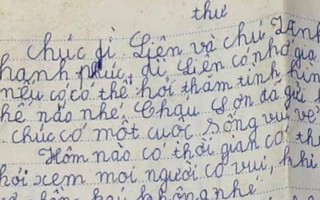 thư
chúc dì Liên và chú
hạnh phúc, dì Liên có nhớ gia
nếu có có thể hỏi thăm tình hìn
thế nào nhé Cháu Sơn đã gửi
chúc có một cuộc sống vui vẻ
Hôm nào có thời gian có th
hỏi xem mọi người có vui, khi
không nhé